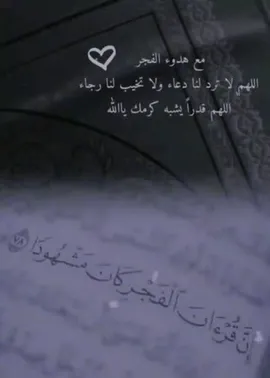 مع هدوء الفجر
اللهم لا ترد لنا دعاء ولا تخيب لنا رجاء
اللهم قدراً يشبه كرمك ياالله
إِنَّ قُرْءَانَ ٱلْفَجْرِ كَانَ مَشْهُودًا ٧٨